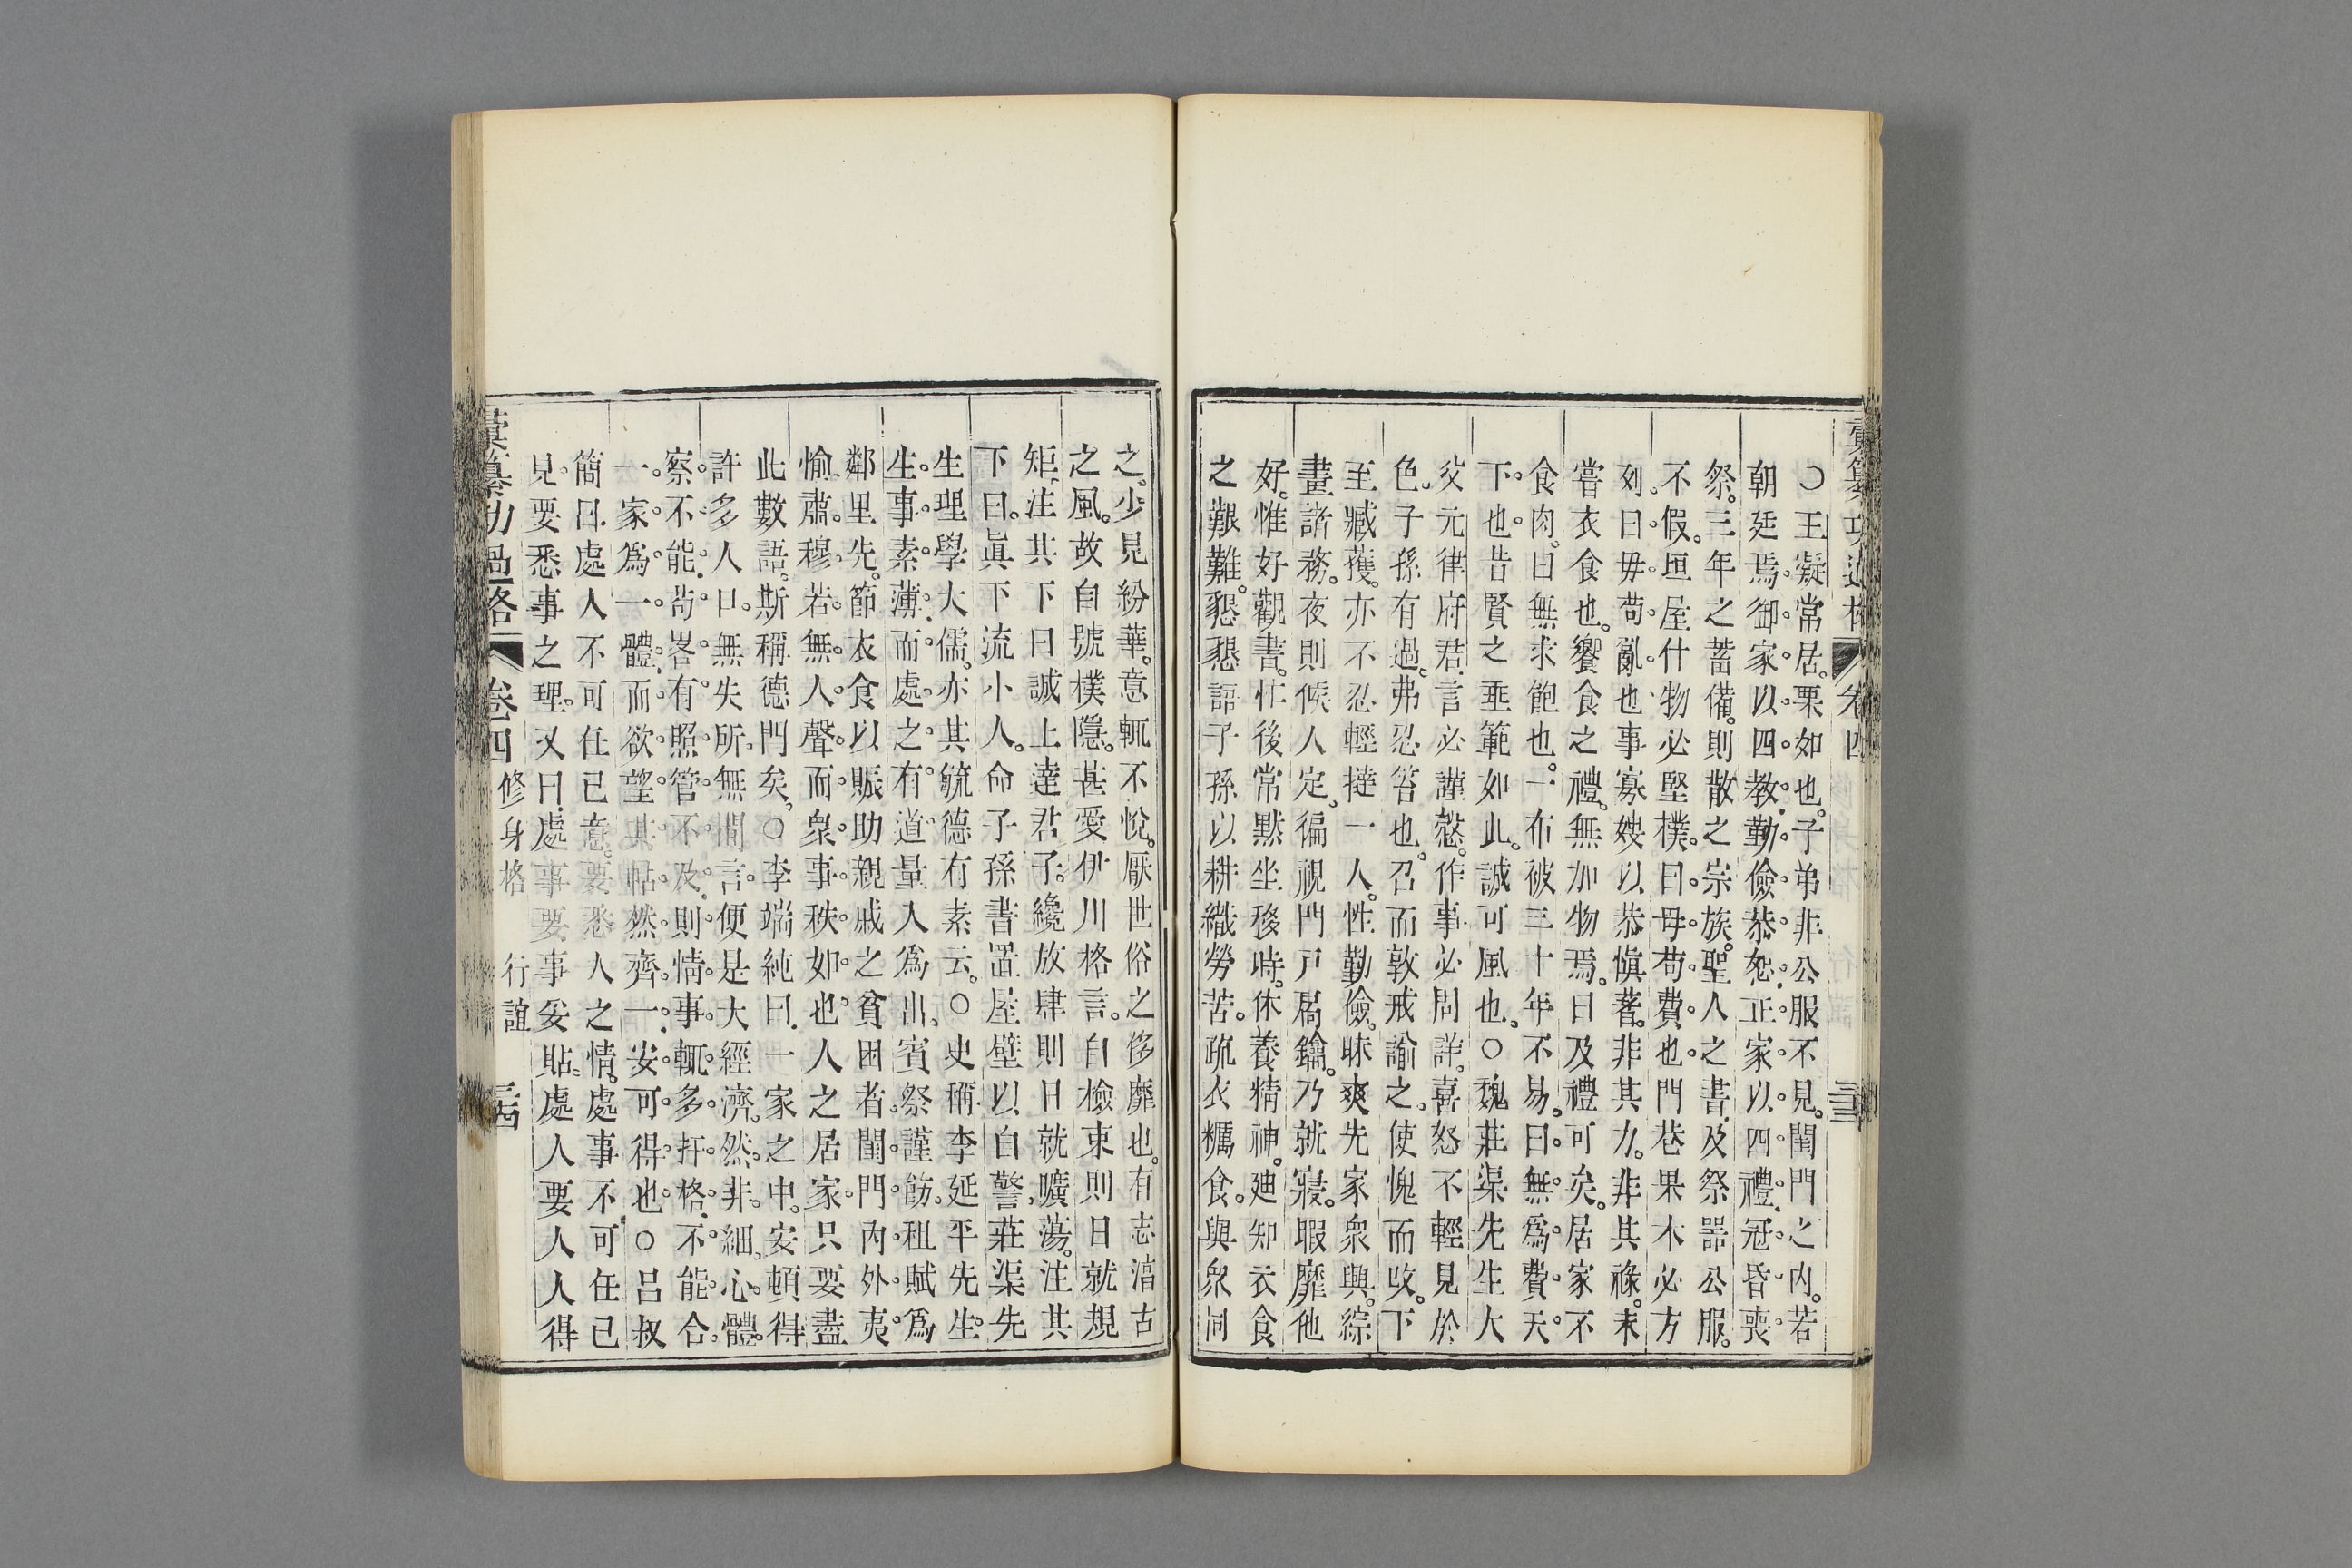 彙纂功過格 卷四 三三
○王凝常居。栗如也。子弟非公服不見。閨門之內。若
朝廷焉。御家以四教。勤儉恭恕。正家以四禮。冠昏喪
祭。三年之蓄備。則散之宗族。聖人之書。及祭器公服。
不假。垣屋什物必堅樸。曰。毋苟費也。門巷果木必方
列。曰。毋苟亂也。事寡嫂以恭愼著。非其力。非其祿。未
嘗衣食也。饗食之禮。無加物焉。曰及禮可矣。居家不
食肉。曰無求飽也。一布被三十年不易。曰。無爲費天
下也。昔賢之垂範如此。誠可風也。○魏莊渠先生大
父元律府君。言必謹慤。作事必周詳。喜怒不輕見於
色。子孫有過。弗忍笞也。召而敦戒諭之。使愧而改。下
至臧蒦。亦不忍輕撻一人。性勤儉。昧爽先家衆興。綜
畫諸務。夜則候人定。徧視門戸扃鑰。乃就寢。暇靡他
好。惟好觀書。忙後常默坐移時。休養精神。廸知衣食
之艱難。懇懇語子孫以耕織勞苦。疏衣糲食。與衆同
之。少見紛華。意輒不悅。厭世俗之侈靡也。有志濇古
之風。故自號樸隱。甚愛伊川格言。自檢束則日就規
矩。注其下曰誠上達君子。纔放肆則日就曠蕩。注其
下曰。眞下流小人。命子孫書置屋壁以自警。莊渠先
生理學大儒。亦其毓德有素云。○史稱李延平先生。
生事素薄。而處之有道。量入爲出。賓祭謹飭。租賦爲
鄰里先。節衣食以賑助親戚之貧困者。閨門內外。夷
愉肅穆。若無人聲。而衆事秩如也。人之居家。只要盡
此數語。斯稱德門矣。○李端純曰。一家之中。安頓得
許多人口。無失所。無間言。便是大經濟。然非細心體
察不能。苟畧有照管不及。則情事輒多扞格。不能合
一家爲一體。而欲望其帖然齊一。安可得也。○呂叔
簡曰。處人不可任已意。要悉人之情。處事不可任已
見。要悉事之理。又曰。處事要事妥貼。處人要人人得
彙纂功過格 卷四 修身格 行誼 三四